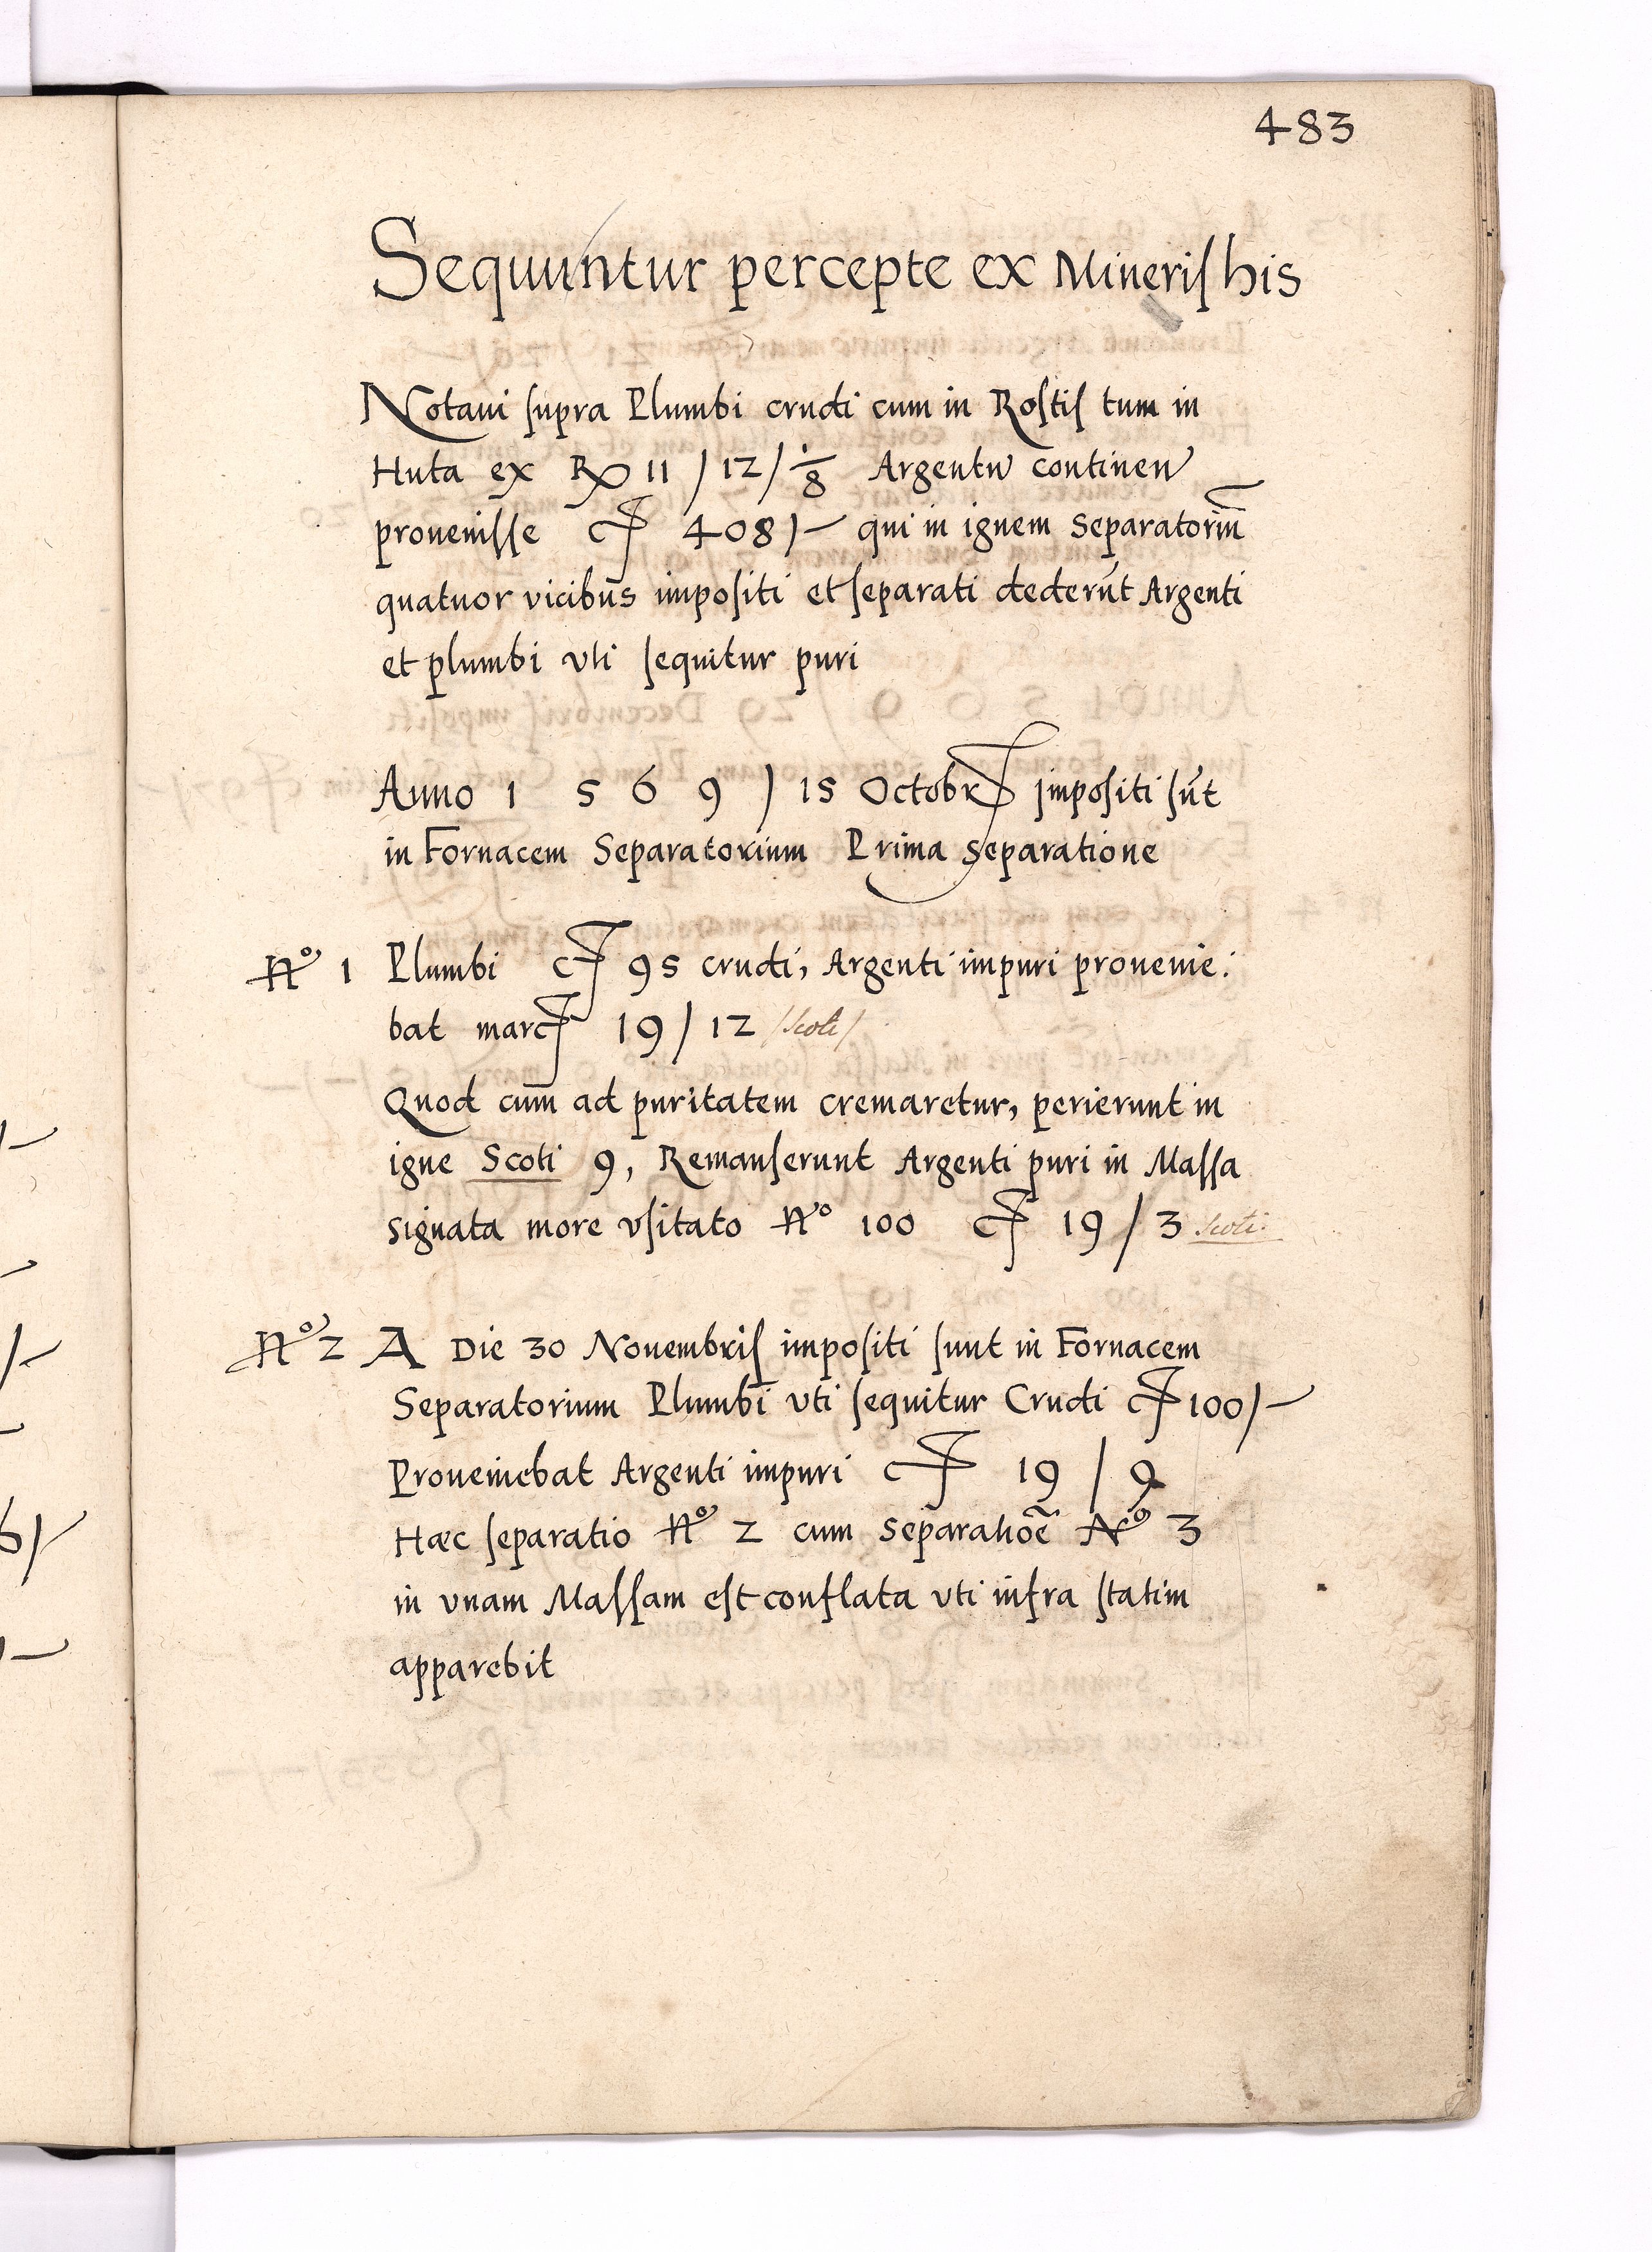 483
Sequuntur percepte ex Mineriſ his
Notaui ſupra Plumbi crudi cum in Roſtiſ tum in
Huta ex 11 / 12 / 1/8 Argentu continen
proueniſſe 408 /- qui in ignem Separatoriū
quatuor vicibus impoſiti et ſeparati dederūt Argenti
et plumbi vti ſequitur puri
Anno 1 5 6 9 / 15 Octobr impoſiti sūt
in Fornacem Separatorium Prima Separatione
Nº 1 Plumbi 95 crudi, Argenti impuri prouenie:
bat marc 19 / 12 /Scoti/
Quod cum ad puritatem cremaretur, perierunt in
igne Scoti 9, Remanſerunt Argenti puri in Maſſa
Signata more vſitato Nº 100 19 / 3 Scoti:
Nº 2 A Die 30 Nouembriſ impoſiti ſunt in Fornacem
Separatorium Plumbi vti ſequitur Crudi 100 /-
Proueniebat Argenti impuri 19 / 9
Hæc ſeparatio Nº 2 cum Separatiōē Nº 3
in vnam Maſſam eſt conflata vti infra ſtatim
apparebit